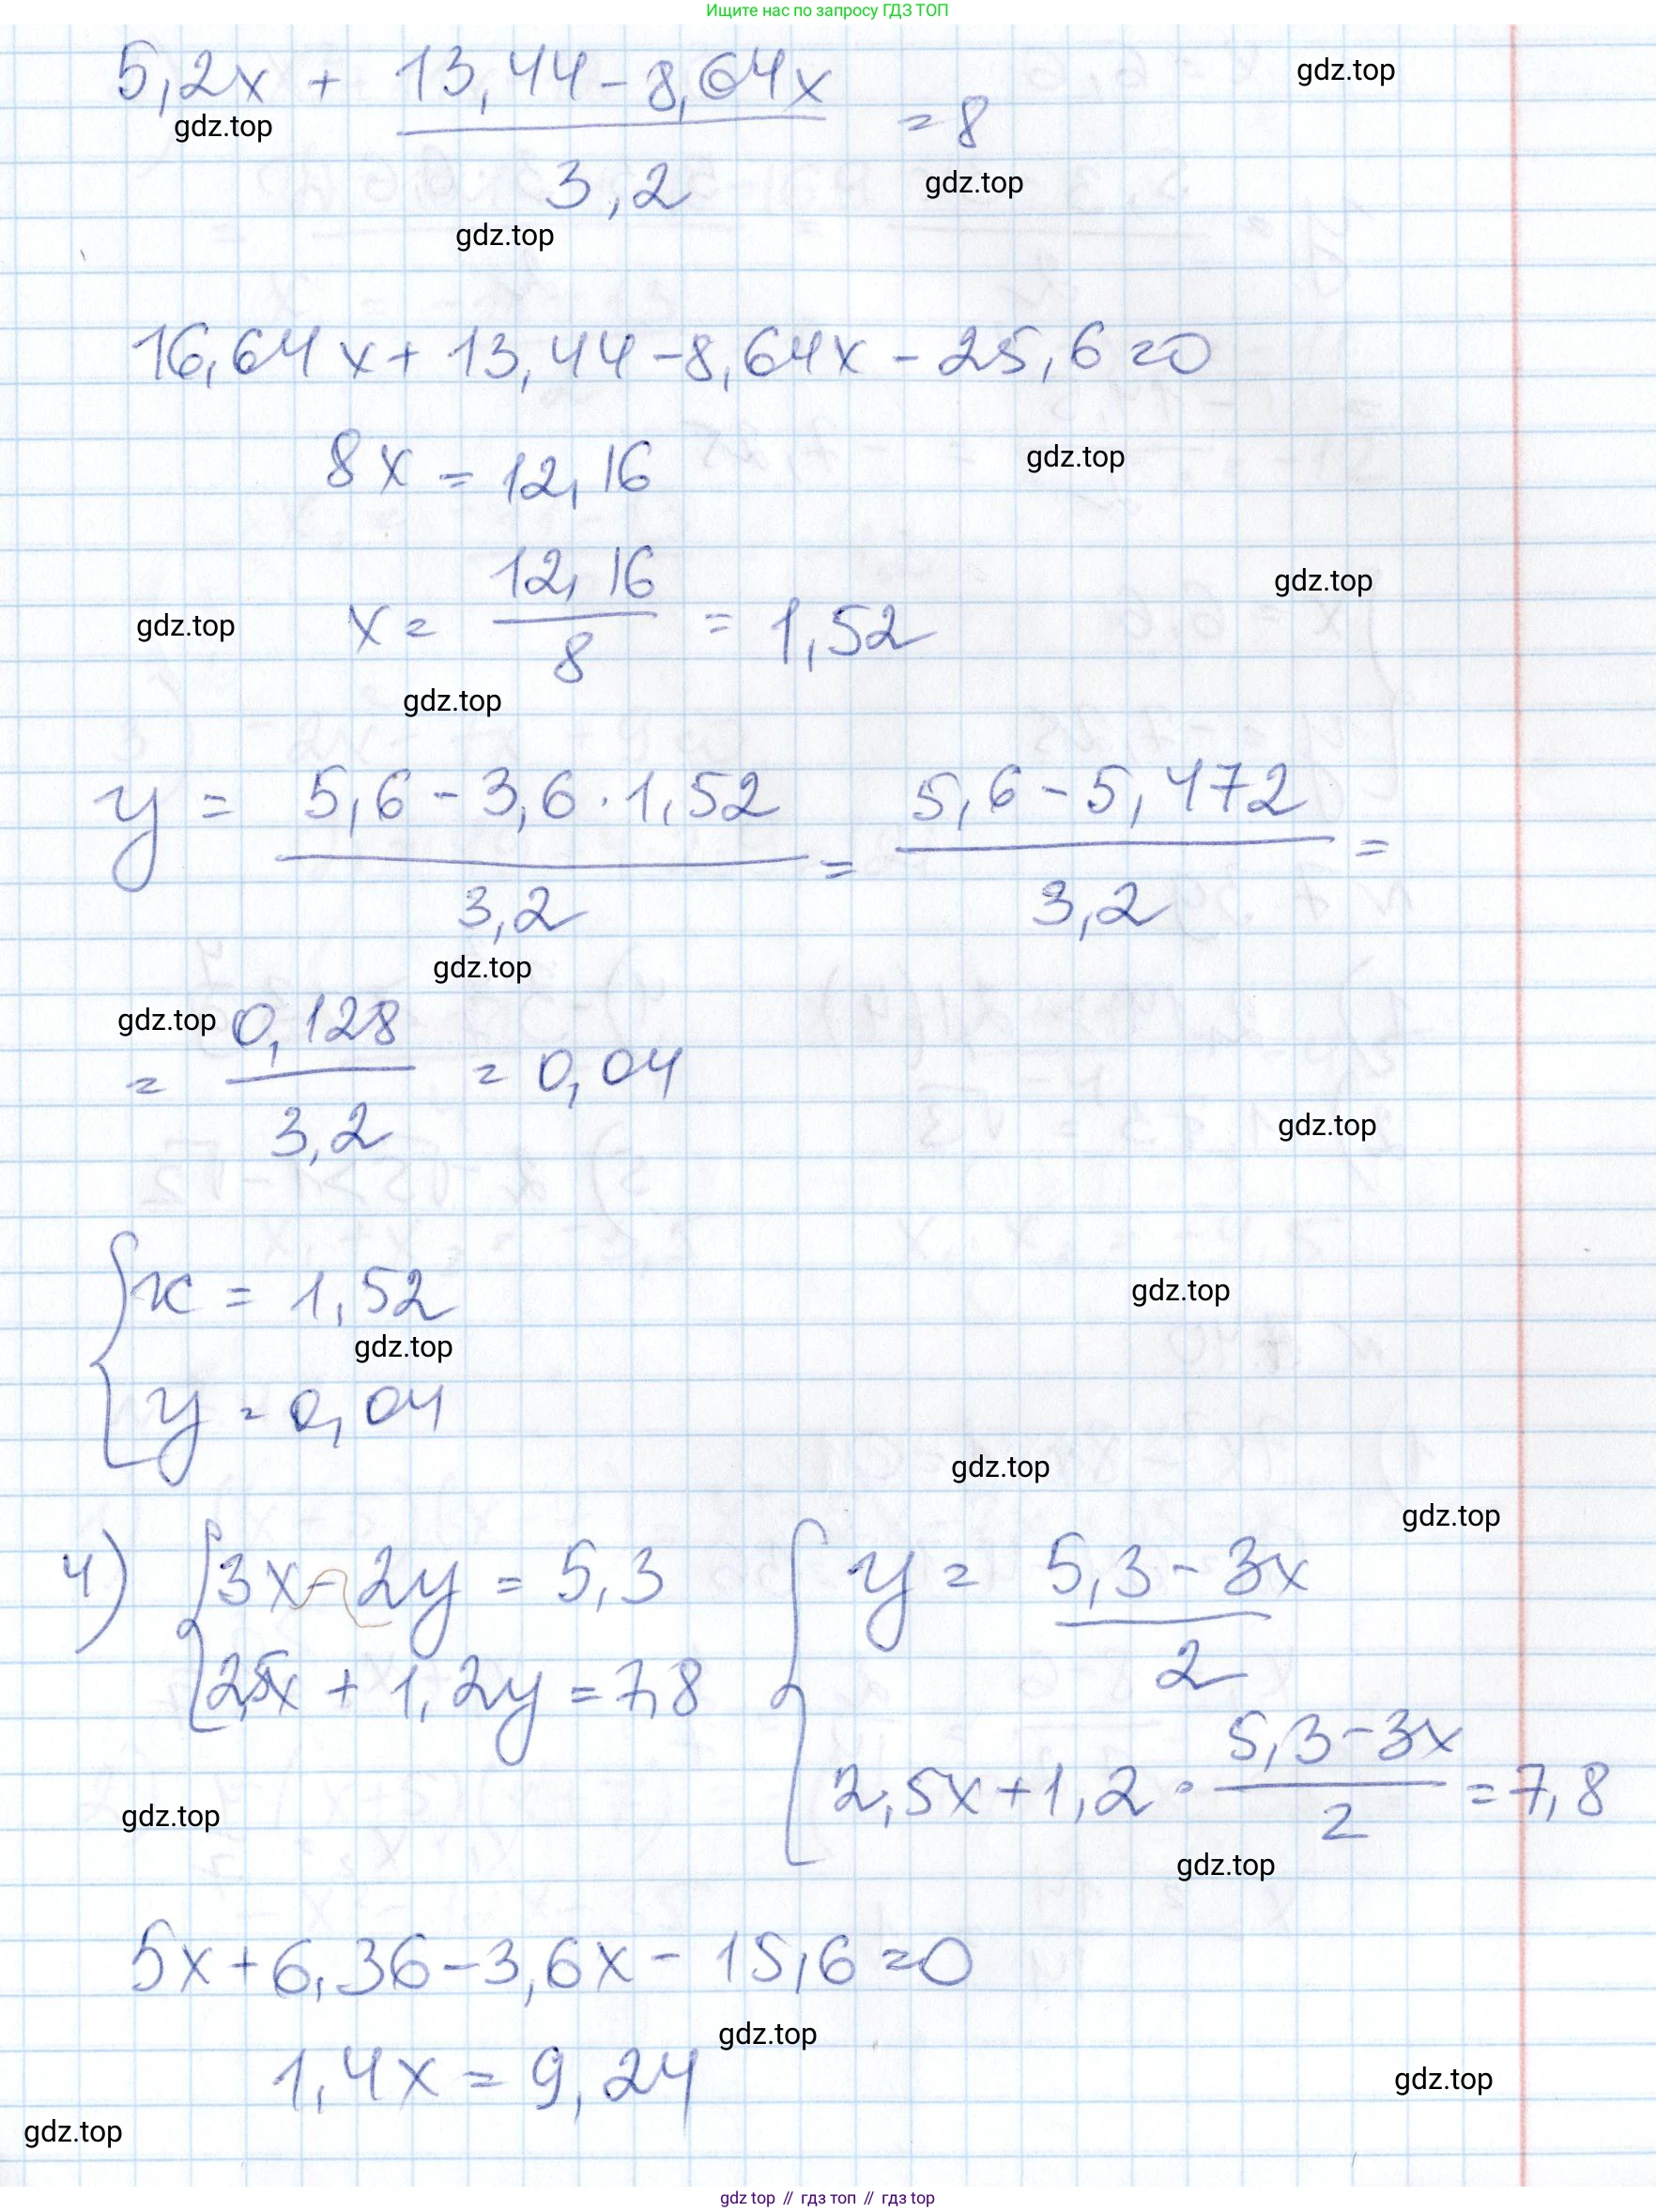 Ищите нас по запросу ГДЗ ТОП
5,2x + (13,44 - 8,64x)/3,2 = 8
gdz.top
gdz.top
gdz.top
gdz.top
16,64x + 13,44 - 8,64x - 25,6 = 0
8x = 12,16
gdz.top
x = 12,16/8 = 1,52
gdz.top
gdz.top
gdz.top
y = (5,6 - 3,6 · 1,52)/3,2 = (5,6 - 5,472)/3,2 =
gdz.top
gdz.top
= 0,128/3,2 = 0,04
gdz.top
{ x = 1,52
gdz.top
gdz.top
y = 0,04
gdz.top
gdz.top
4) { 3x - 2y = 5,3 { y = (5,3 - 3x)/2
2,5x + 1,2y = 7,8 2,5x + 1,2 · (5,3 - 3x)/2 = 7,8
gdz.top
gdz.top
5x + 6,36 - 3,6x - 15,6 = 0
gdz.top
1,4x = 9,24
gdz.top
gdz.top
gdz top // гдз топ // gdz.top